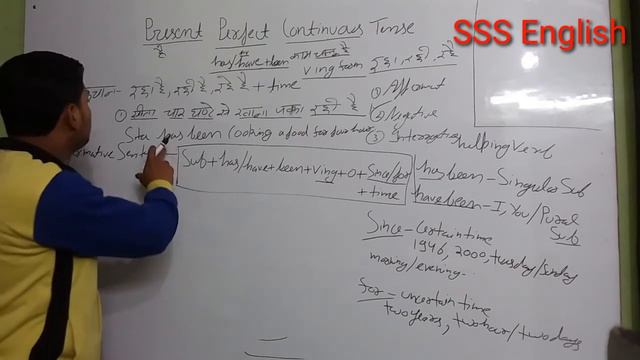 SSS English
Present Perfect Continuous Tense
है
has/have+been
Ving form रहा, रही, रहे है
रहा है, रही है, रहे है + time
① Affirmat
① सीता चार घण्टे से खाना पका रही है
②
Sita has been Cooking a food for four hour
③ Interrogative
helping Verb
rmative Sent
Sub+has/have+been+Ving+O+Since/for
+time
has been - Singular Sub
have been - I, You/Pural
Sub
Since - Certain time
1946, 2000, tuesday/Sunday
morning/evening.
for = uncertain time
two years, two hour/two days